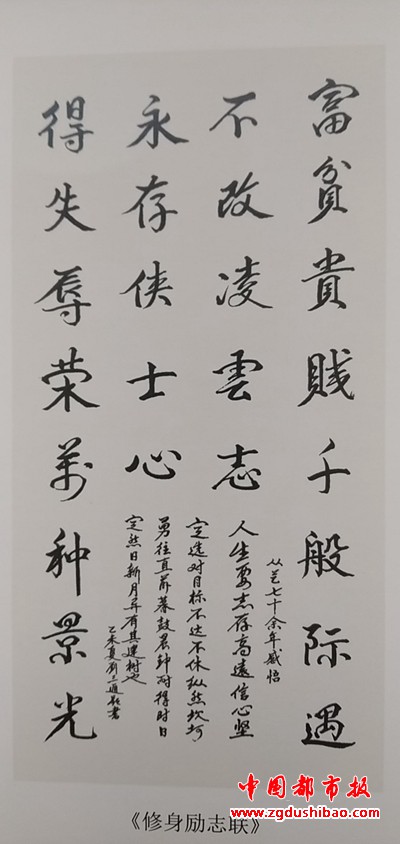 富貧貴賤千般际遇
不改凌雲志
永存侠士心
得失辱荣萬种景光
从艺七十余年感悟
人生要志存高远信心坚
定选对目标不达不休纵然坎坷
勇往直前暮鼓晨钟耐得时日
定然日新月异有其建树也
乙未夏
中国都市报
www.zgdushibao.com
《修身励志联》